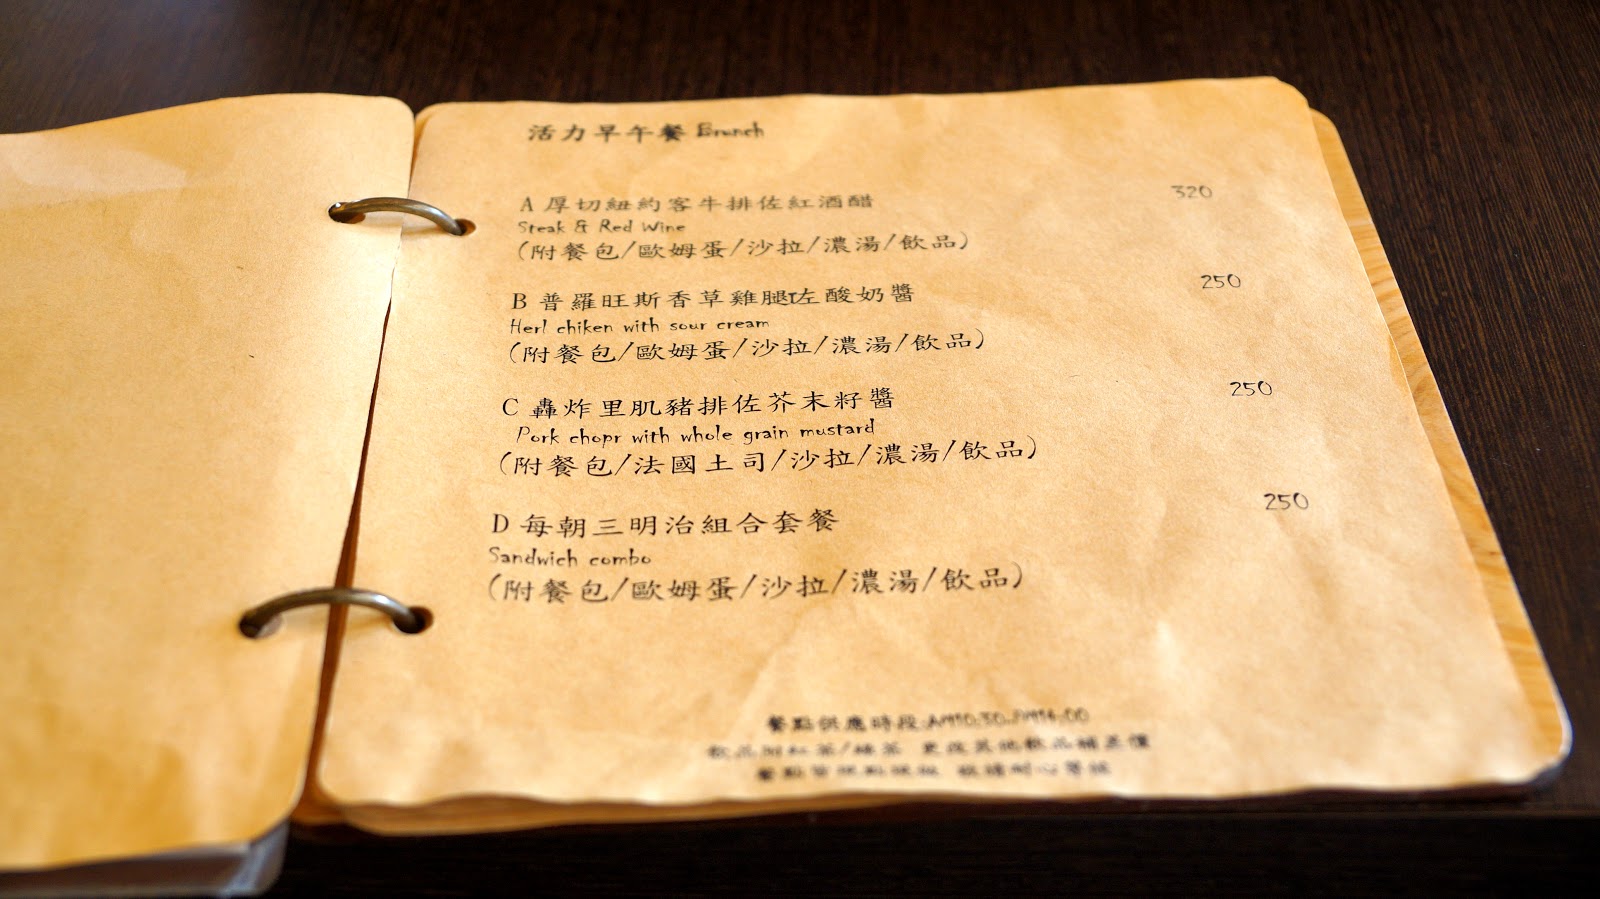 活力早午餐 Brunch
A 厚切紐約客牛排佐紅酒醋 320
Steak & Red Wine
(附餐包/歐姆蛋/沙拉/濃湯/飲品)
B 普羅旺斯香草雞腿佐酸奶醬 250
Herl chiken with sour cream
(附餐包/歐姆蛋/沙拉/濃湯/飲品)
C 轟炸里肌豬排佐芥末籽醬 250
Pork chopr with whole grain mustard
(附餐包/法國土司/沙拉/濃湯/飲品)
D 每朝三明治組合套餐 250
Sandwich combo
(附餐包/歐姆蛋/沙拉/濃湯/飲品)
餐點供應時段:AM10:30-PM16:00
飲品附紅茶/綠茶 更改其他飲品補差價
餐點皆現點現做 敬請耐心等候